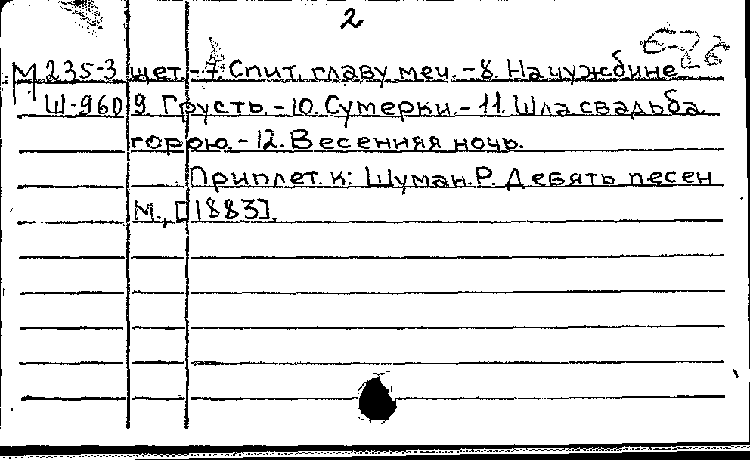 2
М 235-3 щет.-7. Спит, главу меч. -8. На чужбине
Ш-960 9. Грусть. -10. Сумерки. -11. Шла свадьба
горою. -12. Весенняя ночь.
Приплет. к: Шуман. Р. Девять песен
М., [1883].